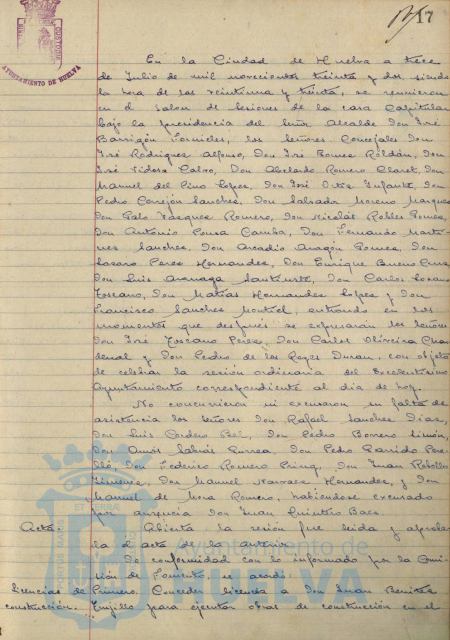 17
AYUNTAMIENTO DE HUELVA
En la Ciudad de Huelva a trece
de Julio de mil novecientos treinta y dos, siendo
la hora de las veintiuna y treinta, se reunieron
en el salon de sesiones de la casa Capitular
bajo la presidencia del Señor Alcalde Don José
Barrigón Fornieles, los Señores Concejales Don
José Rodriguez Alfonso, Don José Ponce Roldán, Don
José Vidosa Calvo, Don Abelardo Romero Claret, Don
Manuel del Pino Lopez, Don José Ortiz Infante, Don
Pedro Cerejón Sanchez, Don Salvador Moreno Marquez
Don Galo Vazquez Romero, Don Nicolás Robles Gomez,
Don Antonio Pousa Camba, Don Fernando Marti-
nez Sanchez, Don Arcadio Aragón Gomez, Don
Lazaro Perez Hernandez, Don Enrique Bueno Cruz
Don Luis Santurte, Don Carlos Lozano
Toscano, Don Matías Hernandez Lopez y Don
Francisco Sanchez Montiel, entrando en los
momentos que después se expresarán los señores
Don José Toscano Perez, Don Carlos Oliveira Chardenal
y Don Pedro de los Reyes Duran, con objeto
de celebrar la sesión ordinaria del Excelentísimo
Ayuntamiento correspondiente al día de hoy.
No concurrieron ni excusaron su falta de
asistencia los señores Don Rafael Sanchez Díaz,
Don Luis Cordero Bel, Don Pedro Borrero Limón,
Don Amós Sabrás Gurrea, Don Pedro Garrido Pere-
lló, Don Federico Romero, Don Juan Rebollo
Jimenez, Don Manuel Narvaez Hernandez, y Don
Manuel de Mora Romero, habiéndose excusado
por ausencia Don Juan Quintero Baez.
Acta.- Abierta la sesión fue leida y aproba-
da el acta de la anterior.
De conformidad con lo informado por la Comi-
sión de Fomento, se acordó:
Licencias de Primero. Conceder licencia a Don Juan Benitez
construcción. Trujillo para ejecutar obras de construcción en el
Ayuntamiento de
HUELVA